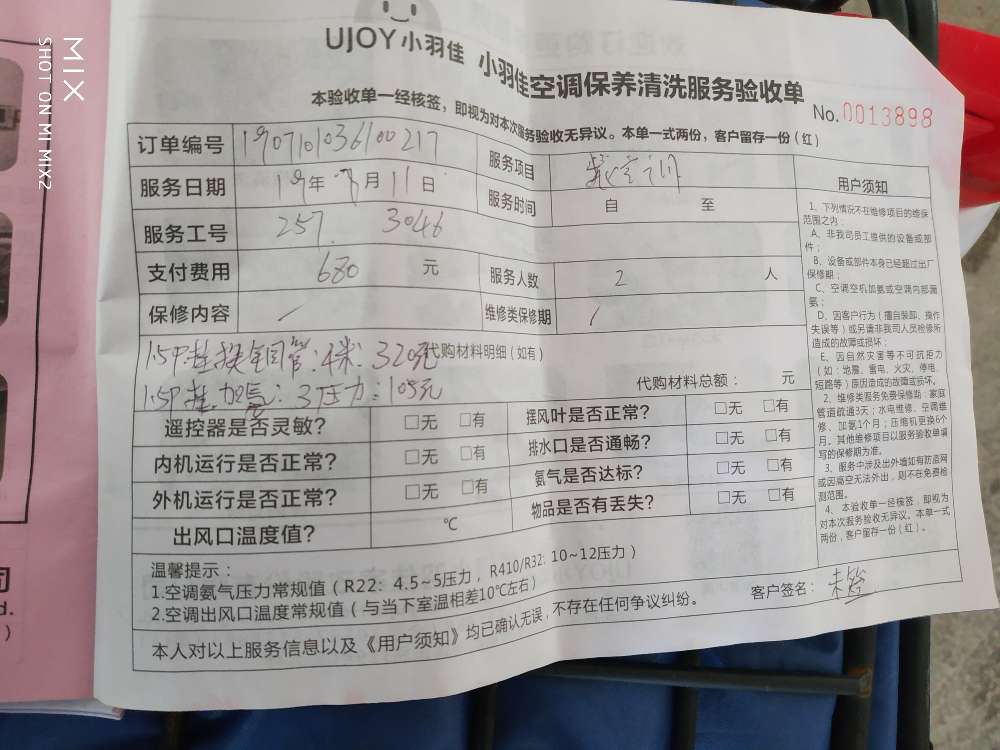 UJOY小羽佳 小羽佳空调保养清洗服务验收单
No.0013898
本验收单一经核签，即视为对本次服务验收无异议。本单一式两份，客户留存一份（红）
订单编号 190710103610 0217 服务项目
服务日期 19年7月11日 服务时间 自 至
服务工号 257. 3046
支付费用 680 元 服务人数 2 人
保修内容 / 维修类保修期 /
代购材料明细（如有）
1.5P挂换铜管：4米：320元
1.5P挂加氨：3压力：105元
代购材料总额： 元
遥控器是否灵敏？ □无 □有 摆风叶是否正常？ □无 □有
内机运行是否正常？ □无 □有 排水口是否通畅？ □无 □有
外机运行是否正常？ □无 □有 氨气是否达标？ □无 □有
出风口温度值？ ℃ 物品是否有丢失？ □无 □有
用户须知
1、下列情况不在维修项目的维保
范围之内：
A、非我司员工提供的设备或部
件；
B、设备或部件本身已经超过出厂
保修期；
C、空调空机加氨或空调内部漏
氨；
D、因客户行为（擅自装卸、操作
失误等）或另请非我司人员检修所
造成的故障或损坏；
E、因自然灾害等不可抗拒力
（如：地震、雷电、火灾、停电、
短路等）原因造成的故障或损坏。
2、维修类服务免费保修期：家庭
管道疏通3天；水电维修、空调维
修、加氨1个月；压缩机更换6个
月。其他维修项目以服务验收单填
写的保修期为准。
3、服务中涉及出外墙如有防盗网
或因高空无法外出，则不在免费检
测范围。
4、本验收单一经核签，即视为
对本次服务验收无异议。本单一式
两份，客户留存一份（红）。
温馨提示：
1.空调氨气压力常规值（R22：4.5~5压力，R410/R32：10~12压力）
2.空调出风口温度常规值（与当下室温相差10℃左右）
客户签名：未签
本人对以上服务信息以及《用户须知》均已确认无误，不存在任何争议纠纷。
MIX
SHOT ON MI MIX2
司
d.
)